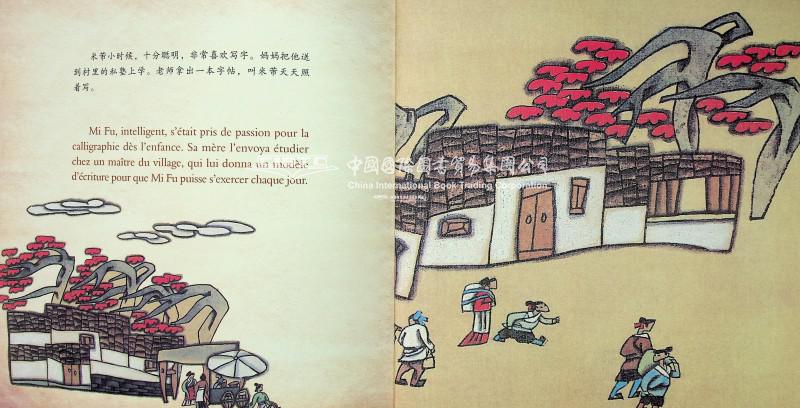 米芾小时候，十分聪明，非常喜欢写字。妈妈把他送
到村里的私塾上学。老师拿出一本字帖，叫米芾天天照
着写。
Mi Fu, intelligent, s'était pris de passion pour la
calligraphie dès l'enfance. Sa mère l'envoya étudier
chez un maître du village, qui lui donna un modèle
d'écriture pour que Mi Fu puisse s'exercer chaque jour.
中國國際圖書貿易集團公司
China International Book Trading Corporation